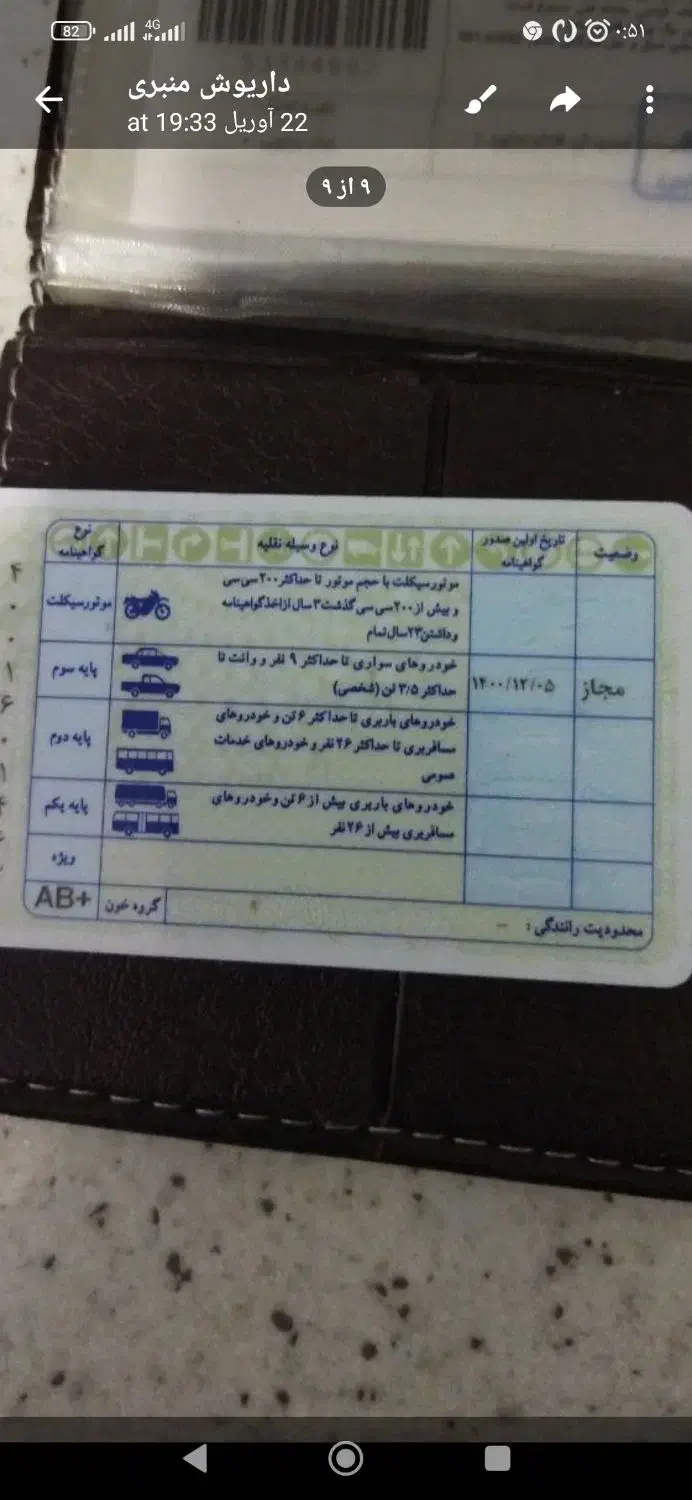 82
4G
۰:۵۱
داریوش منبری
22 آوریل at 19:33
۹ از ۹
نوع گواهینامه
نوع وسیله نقلیه
تاریخ اولین صدور گواهینامه
وضعیت
موتورسیکلت
موتورسیکلت با حجم موتور تا حداکثر ۲۰۰ سی سی
و بیش از ۲۰۰ سی سی گذشت ۳ سال از اخذ گواهینامه
و داشتن ۲۳ سال تمام
پایه سوم
خودروهای سواری تا حداکثر ۹ نفر و وانت تا
حداکثر ۳/۵ تن (شخصی)
۱۴۰۰/۱۲/۰۵
مجاز
پایه دوم
خودروهای باربری تا حداکثر ۶ تن و خودروهای
مسافربری تا حداکثر ۲۶ نفر و خودروهای خدمات
عمومی
پایه یکم
خودروهای باربری بیش از ۶ تن و خودروهای
مسافربری بیش از ۲۶ نفر
ویژه
AB+
گروه خون
محدودیت رانندگی : -